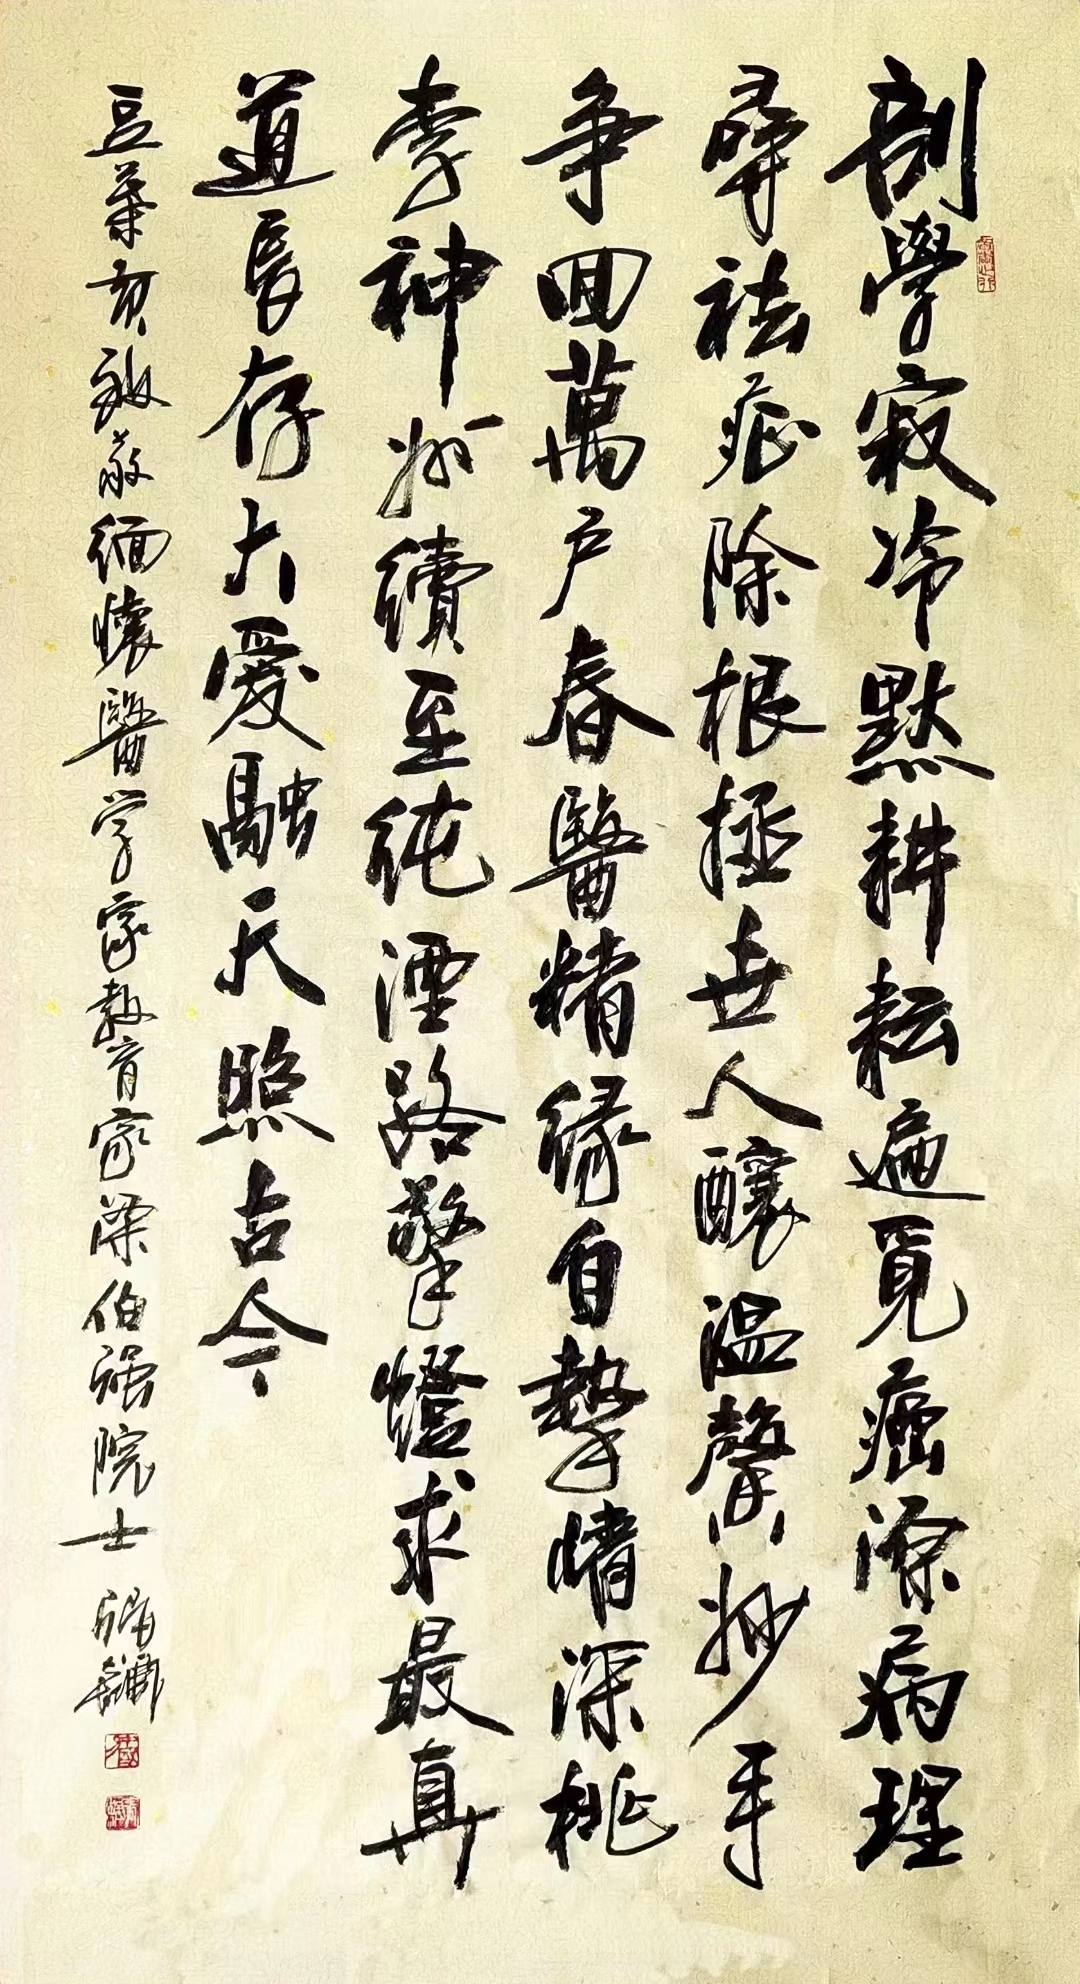 剖學寂冷默耕耘遍覓癌源病理
尋祛症除根拯世人釀温馨妙手
争回萬户春醫精緣自摯情深桃
李神州續至純湮路擎燈求最真
道長存大愛融天照古今
豆葉黄
敬緬懷醫学家教育家梁伯强院士